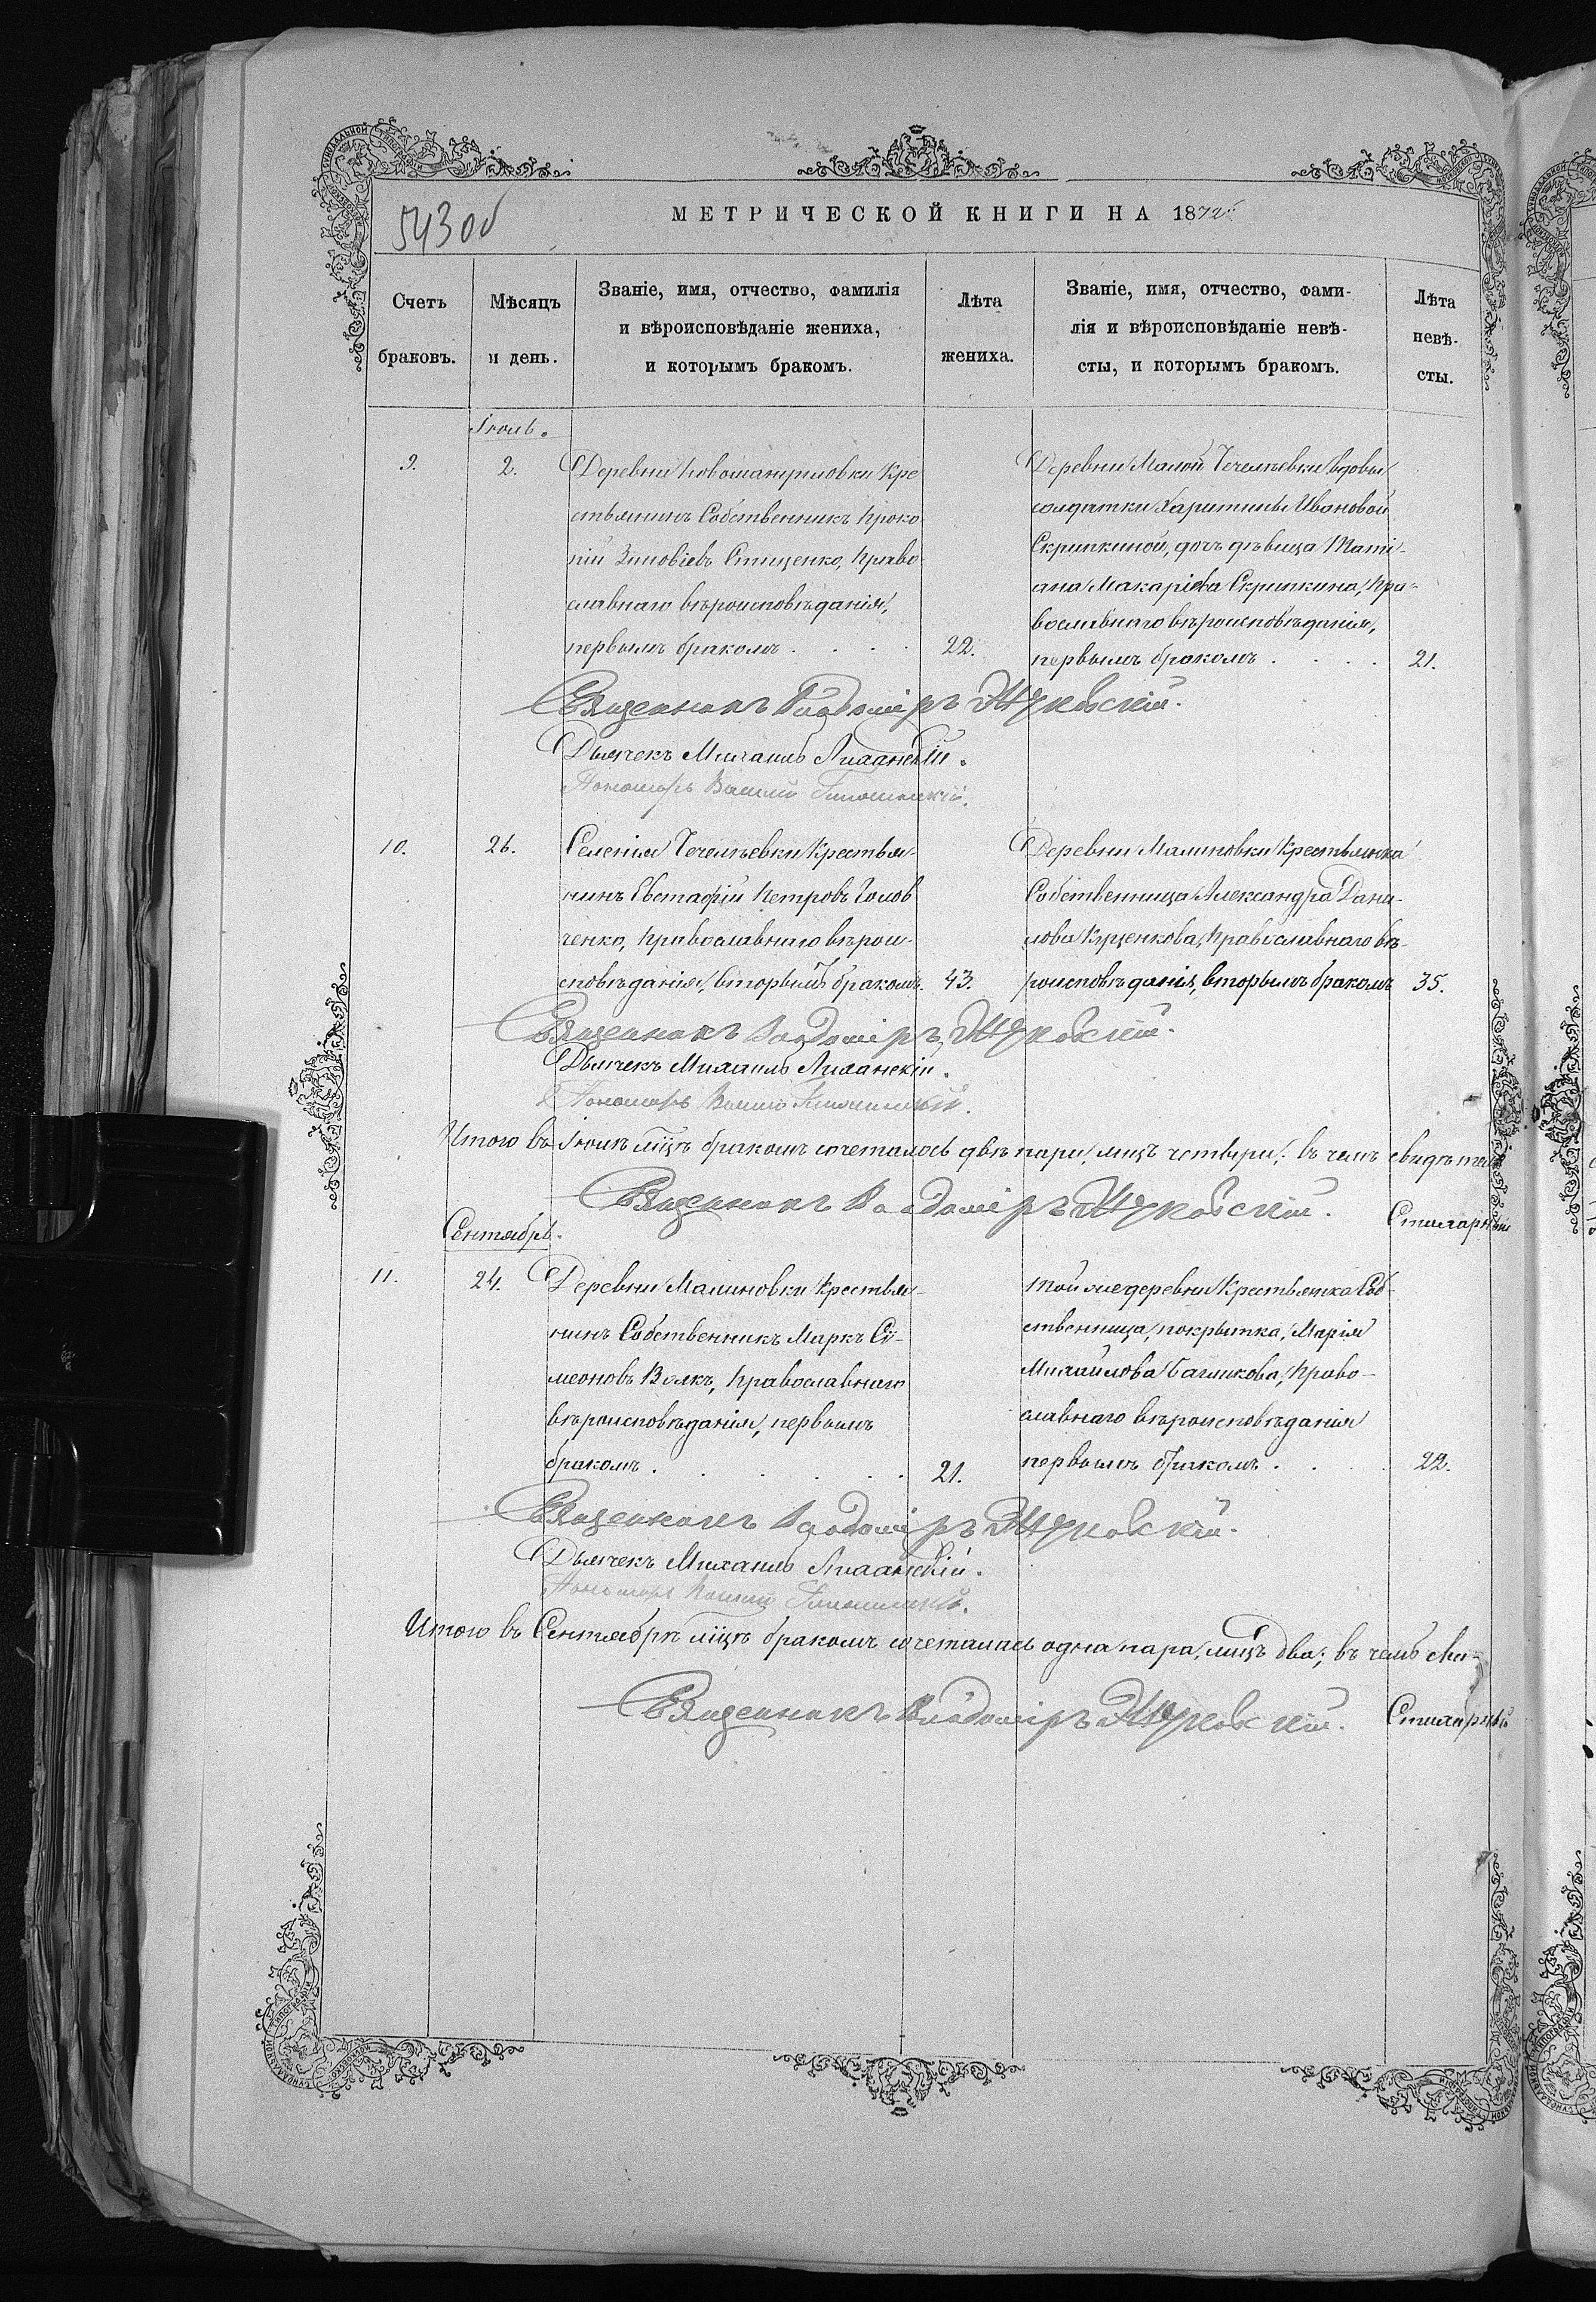 МЕТРИЧЕСКОЙ КНИГИ НА 1872
543 об
Счетъ браковъ.
Мѣсяцъ и день.
Званіе, имя, отчество, фамилія
и вѣроисповѣданіе жениха,
и которымъ бракомъ.
Лѣта жениха.
Званіе, имя, отчество, фами-
лія и вѣроисповѣданіе невѣ-
сты, и которымъ бракомъ.
Лѣта невѣ-
сты.
9.
2.
Деревни Кре
стьянинъ Собственникъ Проко
пій Зиновіевъ Стиценко, Право
славнаго вѣроисповѣданія,
первымъ бракомъ . . . .
22.
Деревни Малой Чечелѣевки вдовы
солдатки Харитины Ивановой
Скрипкиной, дочь дѣвица Тати-
ана Макаріева Скрипкина, Пра-
вославнаго вѣроисповѣданія,
первымъ бракомъ . . . .
21.
Священникъ Владиміръ Жуковскій.
Дьячекъ Михаилъ Лиданскій.
Пономарь Василій
10.
26.
Селенія Чечелѣевки Крестья-
нинъ Евстафій Петровъ Голов
ченко, Православнаго вѣрои-
сповѣданія, вторымъ бракомъ.
43.
Деревни Малиновки Крестьянка
Собственница Александра Дани-
лова Куценкова, Православнаго вѣ-
роисповѣданія, вторымъ бракомъ
35.
Священникъ Владиміръ Жуковскій.
Дьячекъ Михаилъ Лиданскій.
Пономарь Василій
Итого въ мцѣ бракомъ сочеталось двѣ пары, лицъ четыри; въ чемъ свидѣтел
Священникъ Владиміръ Жуковскій.
Сентябрь.
11.
24.
Деревни Малиновки Крестья-
нинъ Собственникъ Маркъ Сі-
меоновъ Волкъ, Православнаго
вѣроисповѣданія, первымъ
бракомъ . . . . .
21.
Той же деревни Крестьянка Соб-
ственница, покрытка, Марія
Михайлова Багликова, Право-
славнаго вѣроисповѣданія
первымъ бракомъ . . .
22.
Священникъ Владиміръ Жуковскій.
Дьячекъ Михаилъ Лиданскій.
Пономарь Василій
Итого въ Сентябрѣ мцѣ бракомъ сочеталась одна пара, лицъ два; въ чемъ сви-
Священникъ Владиміръ Жуковскій.